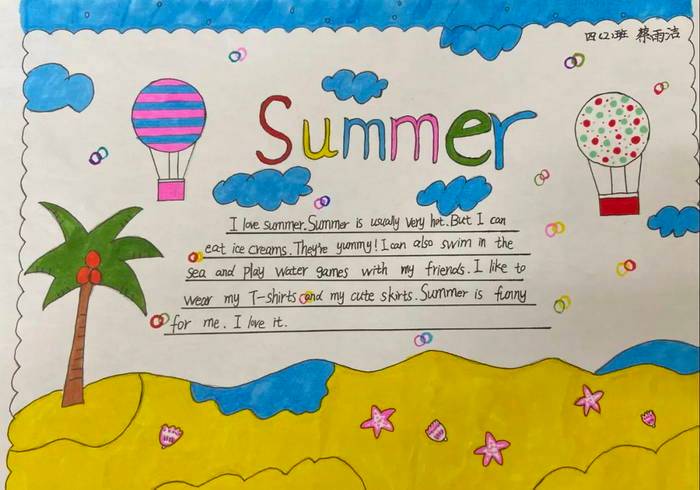 四(2)班 蔡雨洁
Summer
I love summer. Summer is usually very hot. But I can
eat ice creams. They're yummy! I can also swim in the
sea and play water games with my friends. I like to
wear my T-shirts and my cute skirts. Summer is funny
for me. I love it.